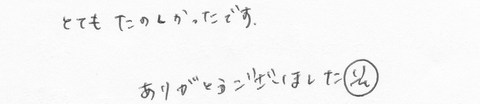 とても たのしかったです.
ありがとうございました